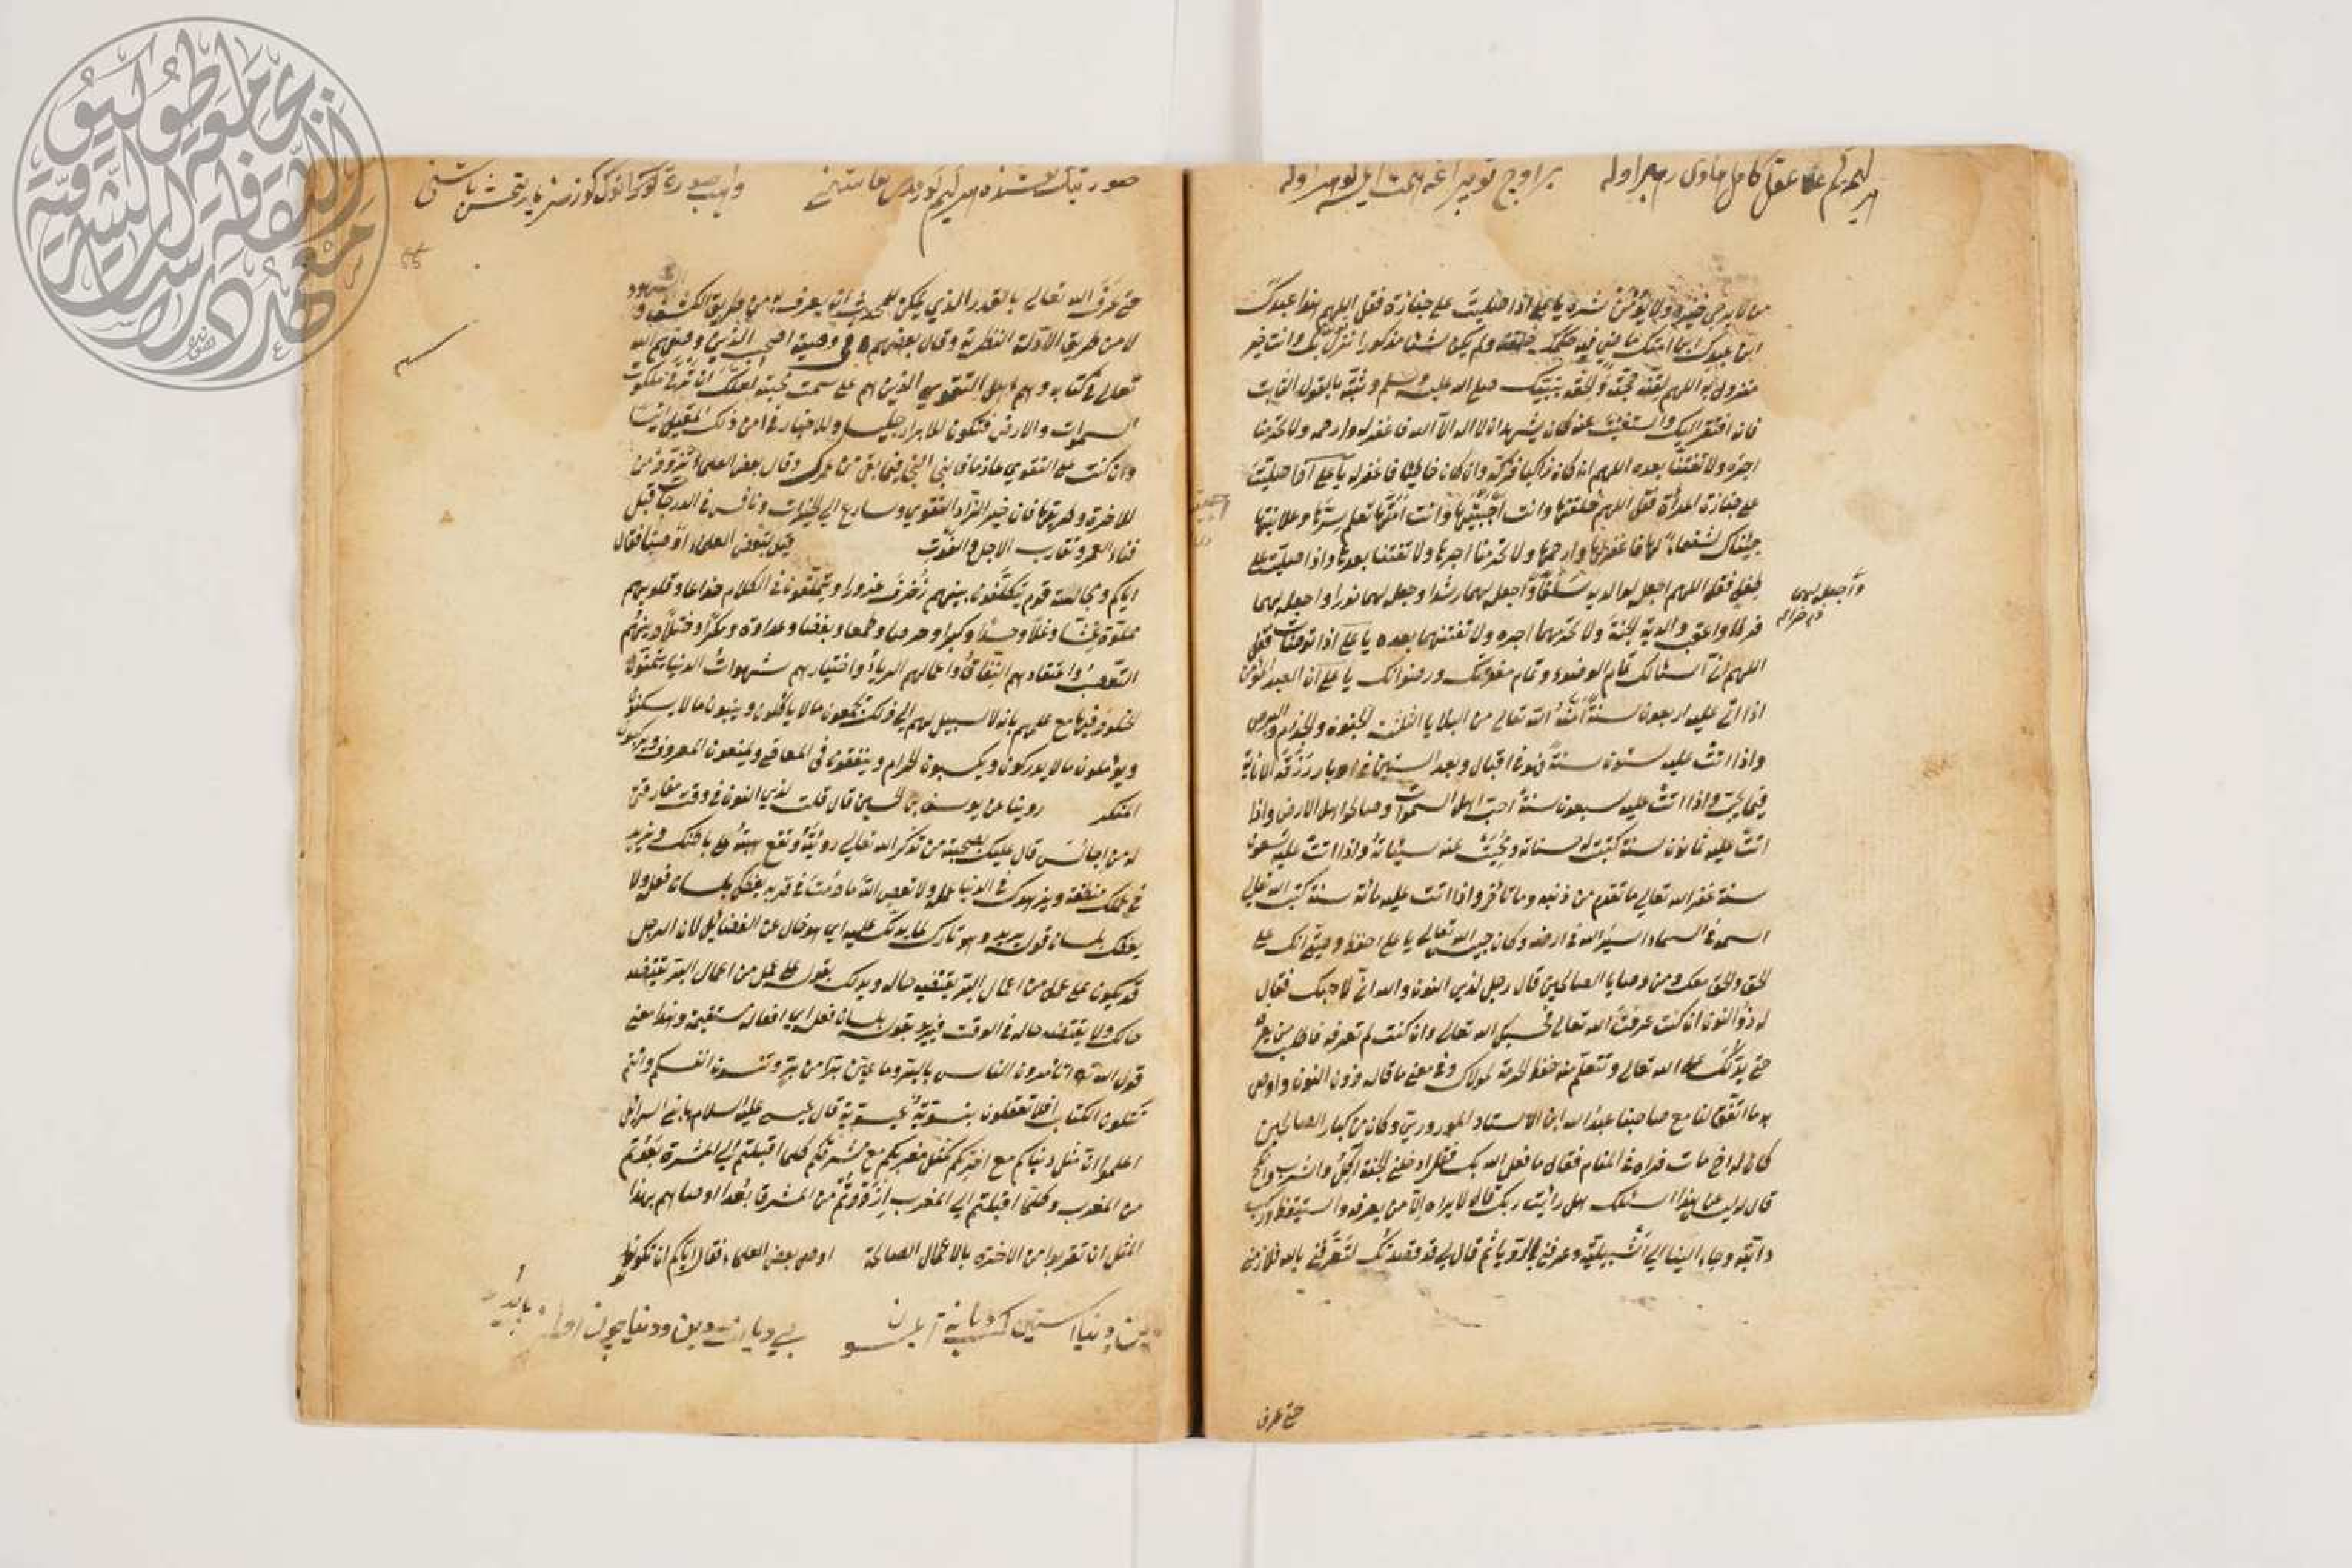 من لا يرجى خيره ولا يؤمن شره يا علي اذا صليت على جنازة فقل اللهم هذا عبدك
ابن عبدك ابن امتك ماض فيه حكمك خلقته ولم يكن شيئا مذكورا نزل بك وانت خير
منزول به اللهم لقنه حجته والحقه بنبيك صلى الله عليه وسلم وثبته بالقول الثابت
فانه افتقر اليك واستغنيت عنه كان يشهد ان لا اله الا الله فاغفر له وارحمه ولا تحرمنا
اجره ولا تفتنا بعده اللهم ان كان زاكيا فزكه وان كان خاطئا فاغفر له يا علي اذا صليت
على جنازة امرأة فقل اللهم خلقتها وانت احييتها وانت امتها تعلم سرها وعلانيتها
جئناك شفعاء لها فاغفر لها وارحمها ولا تحرمنا اجرها ولا تفتنا بعدها واذا صليت على
طفل فقل اللهم اجعل لوالديه سلفا واجعله لهما رشدا وجعل لهما نورا واجعله لهما
واجعله لهما
فرطا واعقب والديه الجنة ولا تحرمهما اجره ولا تفتنهما بعده يا علي اذا توضأت فقل
اللهم اني اسئالك تمام الوضوء وتمام مغفرتك ورضوانك يا علي ان العبد المؤمن
اذا اتى عليه اربعون سنة امنه الله تعالى من البلايا الثلث الجنون والجذام والبرص
واذا اتت عليه ستون سنة فهو في اقبال وبعد الستين في ادبار رزقه الانابة
فيما يحب واذا اتت عليه سبعون سنة احبه اهل السموات وصالحوا اهل الارض واذا
اتت عليه ثمانون سنة كتبت له حسناته ومحيت عنه سيئاته واذا اتت عليه تسعون
سنة غفر الله تعالى ما تقدم من ذنبه وما تأخر واذا اتت عليه مائة سنة كتب الله تعالى
اسمه في السماء اسير الله في ارضه وكان حبيس الله تعالى يا علي احفظ وصيتي انك على
الحق والحق معك ومن وصايا الصالحين قال رجل لذي النون والله اني لاحبك فقال
له ذو النون ان كنت عرفت الله تعالى فحسبك الله تعالى وان كنت لم تعرفه فاطلب من يعرفه
حتى يدلك على الله تعالى وتتعلم منه حفظ الحرمة لمولاك وفي معنى ما قاله ذون النون واوصى
به ما اتفق لنا مع صاحبنا عبد الله ابن الاستاد الموروري وكان من كبار الصالحين
كان له اخ مات فراه في المنام فقال ما فعل الله بك فقال ادخلني الجنة آكل واشرب وانكح
قال له ليس عن هذا اسئلك هل رأيت ربك قال لا يراه الا من يعرفه واستيقظ وركب
دابته وجاء الينا الى اشبيلية وعرفني بالرؤيا ثم قال لي قد قصدتك لتعرفني بالله فلازمني
حتى عرف
حتى عرف الله تعالى بالقدر الذي يمكن للمحدث ان يعرفه به من طريق الكشف والشهود
لا من طريق الادلة النظرية وقال بعضهم في وصية اصحب الذين وصفهم الله
تعالى في كتابه وهم اهل التقوي الذين هم على سمت محبته لعلك ان ترى ملكوت
السموات والارض فتكون للابرار جليسا وللاخيار في امن ذلك المقيل انيسا
وان كنت على التقوي عازما فابني النجا فيما بقي من عمرك وقال بعض العلماء تزود من
للاخرة وطريقها فان خير الزاد التقوي وسارع الى الخيرات ونافس في الدرجات قبل
فناء العمر وتقارب الاجل والفوت قيل لبعض العلماء اوصينا فقال
اياكم ومجالسة قوم يتكلفون بينهم زخرف غرورا ويتملقون في الكلام خداعا وقلوبهم
مملوة غشا وغلا وحسدا وكبرا وحرصا وطمعا وبغضا وعداوة ومكرا وختلا دينهم
التعصب واعتقادهم النفاق واعمالهم الرياء واختيارهم شهوات الدنيا يتمنون
الخلود فيها مع علمهم بانه لا سبيل لهم الى ذلك يجمعون مالا ياكلون ويبنون مالا يسكنون
ويؤملون مالا يدركون ويكسبون الحرام وينفقون في المعاصي ويمنعون المعروف ويركبون
المنكر روينا عن يوسف بن الحسين قال قلت لذي النون في وقت مفارقتي
له من اجالس قال عليك بصحبة من تذكرك الله تعالى رؤيته وتقع هيبته على باطنك ويزيد
في عملك منطقه ويزهدك في الدنيا عمله ولا تعصي الله ما دمت في قربه يعظك بلسان فعله ولا
يعظك بلسان قوله يريد وهو تارك لما يدلك عليه اي هو خال عن الفضائل لان الرجل
قد يكون على عمل من اعمال البر يقتضيه حاله ويدلك بقوله على عمل من اعمال البر يقتضيه
حالك ولا يقتضيه حاله في الوقت فيريد بقوله بلسان فعله اي افعاله مستقيمة وهذا معنى
قول الله تعالى اتأمرون الناس بالبر وما عين برا من بر وتنسون انفسكم وانتم
تتلون الكتاب افلا تعقلون بنبوية عيسوية قال عيسى عليه السلام يا بني اسرائيل
اعلموا ان مثل دنياكم مع اخرتكم كمثل مغربكم مع مشرقكم كلما اقبلتم الى المشرق بعدتم
من المغرب وكلما اقبلتم الى المغرب ازددتم من المشرق بعدا اوصاهم بهذا
المثل ان تقربوا من الاخرة بالاعمال الصالحة اوصى بعض العلماء فقال اياكم ان تكونوا